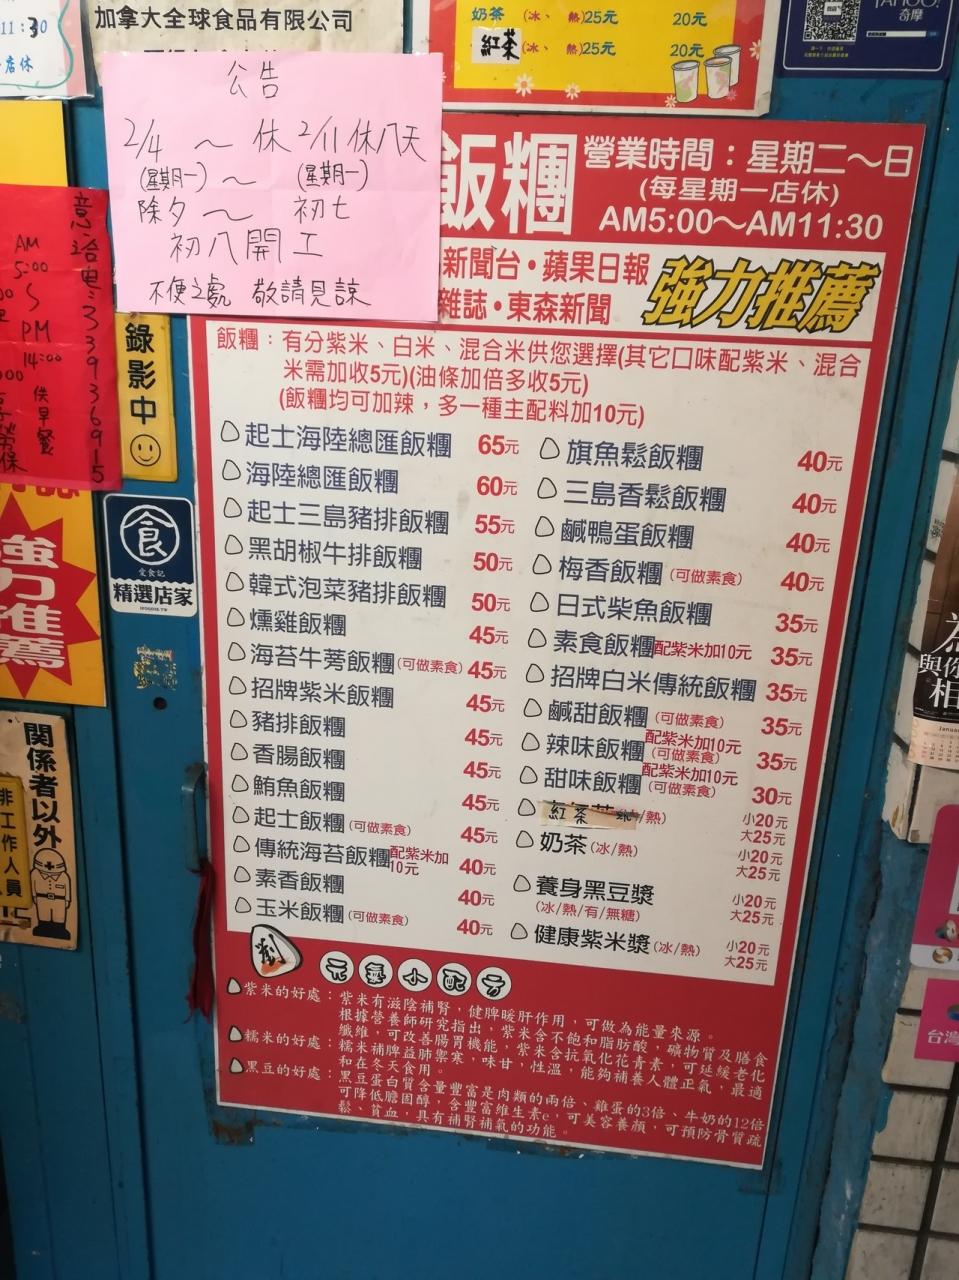 加拿大全球食品有限公司
11:30
店休
奶茶(冰、熱)25元 20元
紅茶(冰、熱)25元 20元
YAHOO!
奇摩
公告
2/4 ～ 休 2/11 休八天
(星期一) ～ (星期一)
除夕 ～ 初七
初八開工
不便之處 敬請見諒
飯糰
營業時間：星期二～日
(每星期一店休)
AM5:00～AM11:30
新聞台・蘋果日報
雜誌・東森新聞
強力推薦
AM
5:00
PM
14:00
33936915
錄影中
食
愛食記
精選店家
強力推薦
關係者以外
非工作人員
飯糰：有分紫米、白米、混合米供您選擇(其它口味配紫米、混合
米需加收5元)(油條加倍多收5元)
(飯糰均可加辣，多一種主配料加10元)
起士海陸總匯飯糰 65元
海陸總匯飯糰 60元
起士三島豬排飯糰 55元
黑胡椒牛排飯糰 50元
韓式泡菜豬排飯糰 50元
燻雞飯糰 45元
海苔牛蒡飯糰(可做素食) 45元
招牌紫米飯糰 45元
豬排飯糰 45元
香腸飯糰 45元
鮪魚飯糰 45元
起士飯糰(可做素食) 45元
傳統海苔飯糰配紫米加10元 40元
素香飯糰 40元
玉米飯糰(可做素食) 40元
旗魚鬆飯糰 40元
三島香鬆飯糰 40元
鹹鴨蛋飯糰 40元
梅香飯糰(可做素食) 40元
日式柴魚飯糰 35元
素食飯糰配紫米加10元 35元
招牌白米傳統飯糰 35元
鹹甜飯糰(可做素食) 35元
辣味飯糰配紫米加10元(可做素食) 35元
甜味飯糰配紫米加10元(可做素食) 30元
紅茶/熱) 小20元
大25元
奶茶(冰/熱) 小20元
大25元
養身黑豆漿 小20元
(冰/熱/有/無糖) 大25元
健康紫米漿(冰/熱) 小20元
大25元
劉
元氣小配方
紫米的好處：紫米有滋陰補腎，健脾暖肝作用，可做為能量來源。
根據營養師研究指出，紫米含不飽和脂肪酸，礦物質及膳食
纖維，可改善腸胃機能，紫米含抗氧化花青素，可延緩老化
糯米的好處：糯米補脾益肺禦寒，味甘，性溫，能夠補養人體正氣，最適
和在冬天食用。
黑豆的好處：黑豆蛋白質含量豐富是肉類的兩倍、雞蛋的3倍、牛奶的12倍
可降低膽固醇，含豐富維生素e，可美容養顏，可預防骨質疏
鬆、貧血，具有補腎補氣的功能。
與你
相
台灣